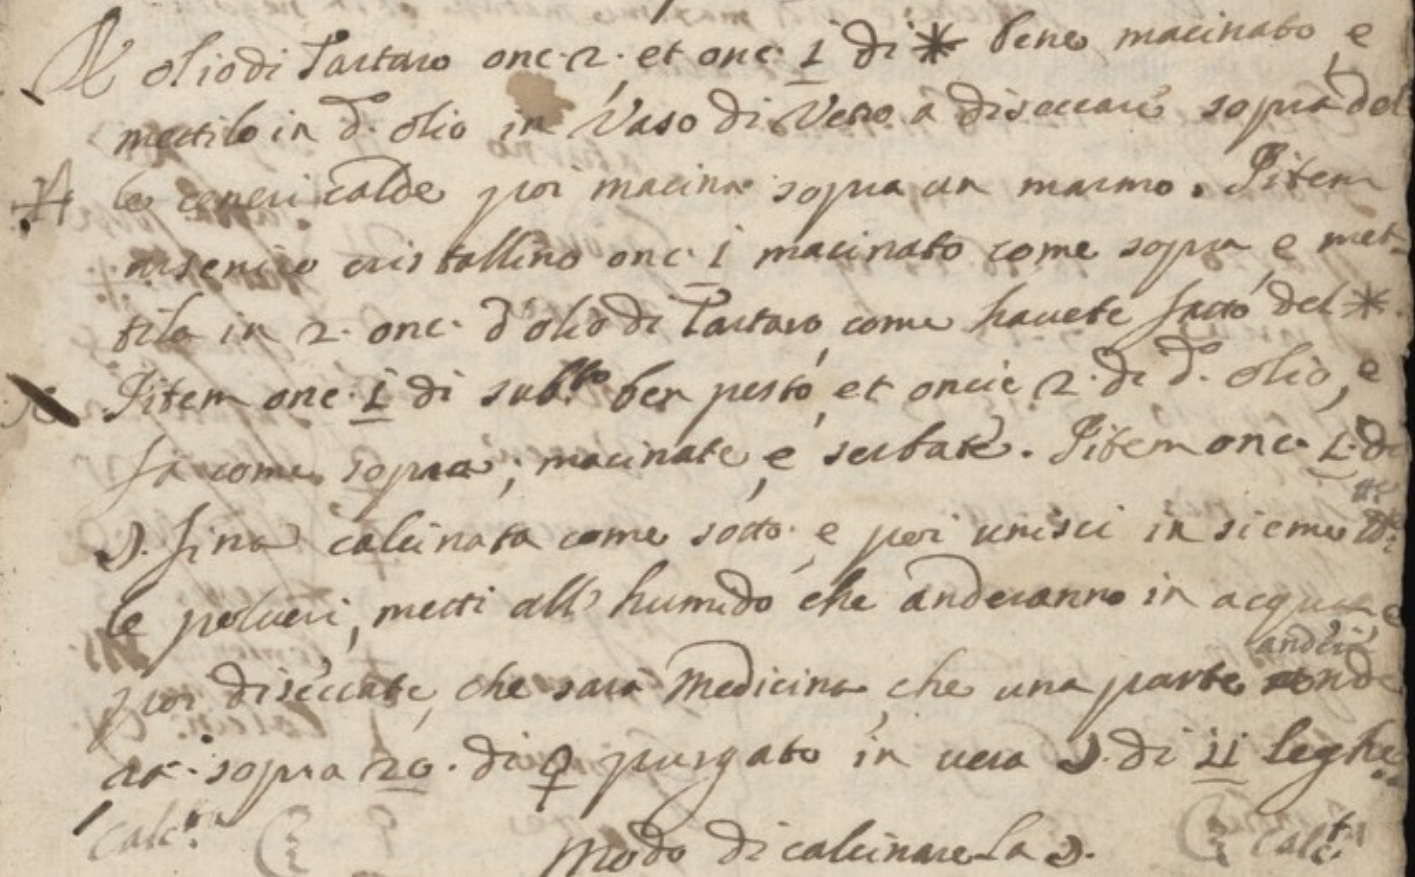 ℞ olio di Tartaro onc. 2. et onc. 1 di ✱ bene macinato e
mettilo in d.º olio in Vaso di Vetro a diseccare sopra del
le ceneri calde poi macina sopra un marmo. Pitem
arsenico cristallino onc. 1 macinato come sopra e met-
tilo in 2. onc. d'olio di Tartaro, come havete fatto del ✱.
Pitem onc. 1 di subl.to ben pesto, et oncie 2. di d.º olio, e
fa come sopra, macinate, e serbate. Pitem onc. 1. di
☽. fina calcinata come sotto e poi unisci insieme
le polveri, metti all'humido che anderanno in acqua e
poi diseccate, che sara Medicina, che una parte
anderà
sopra 20. di ♀ purgato in vera ☽. di 11 leghe
Modo di calcinare la ☽.
Calc.